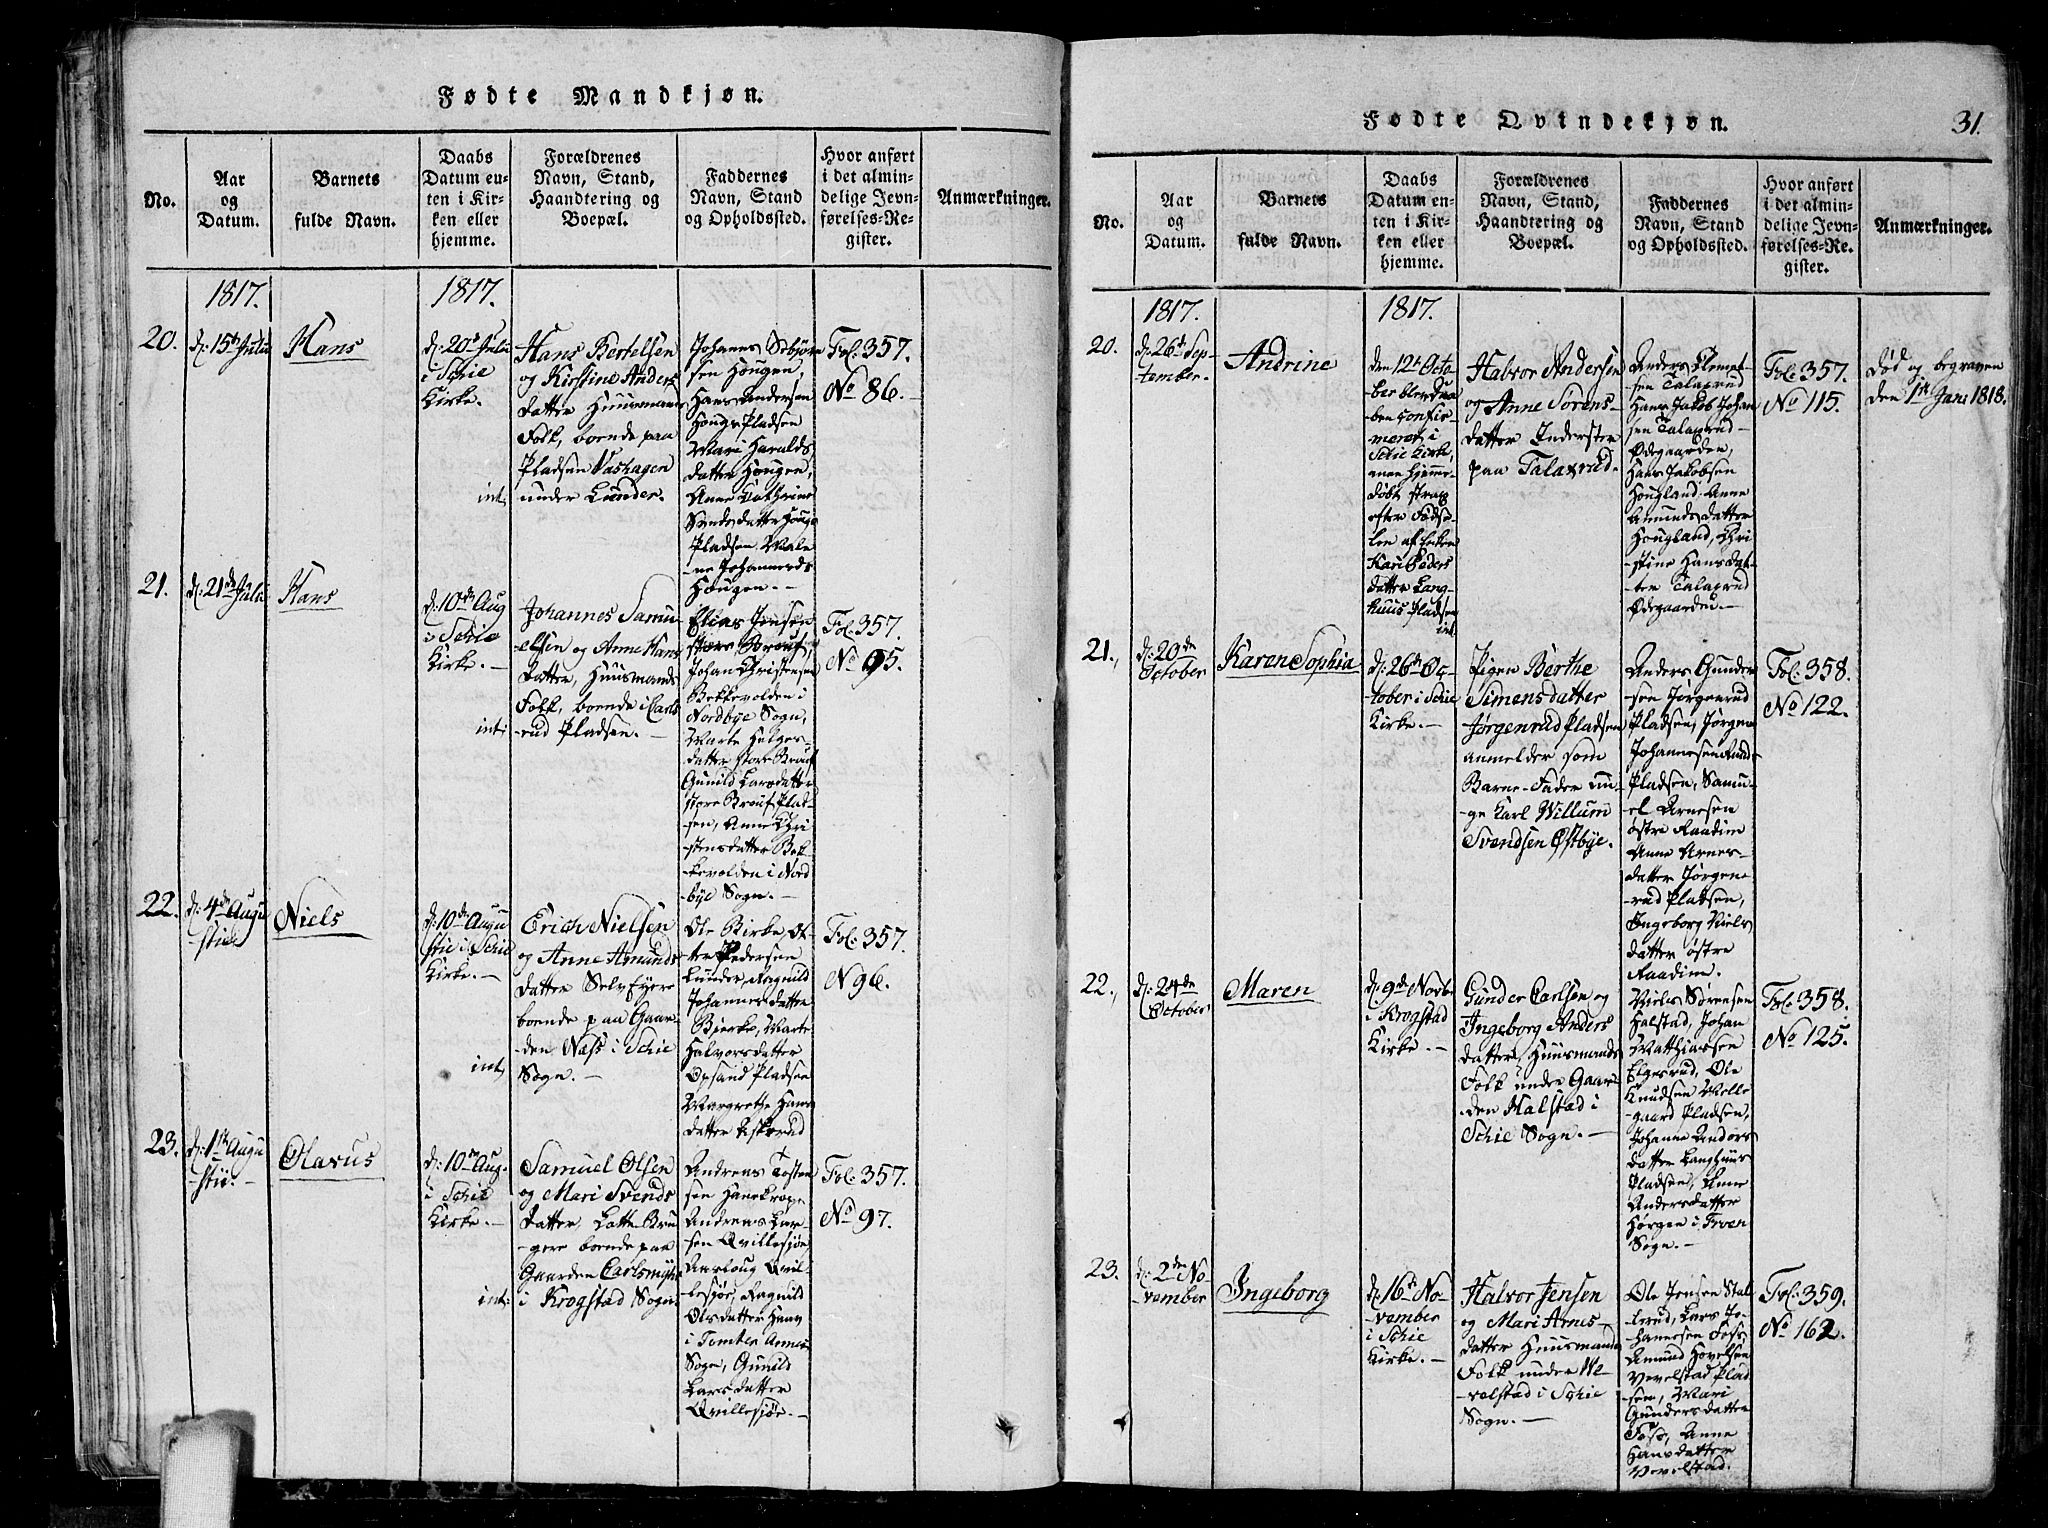 Fødte Mandkjøn.
No.
Aar
og
Datum.
Barnets
fulde Navn.
Daabs
Datum en-
ten i Kir-
ken eller
hjemme.
Forældrenes
Navn, Stand,
Haandtering og
Boepæl.
Faddernes
Navn, Stand
og Opholdssted.
Hvor anført
i det almin-
delige Jevn-
førelses-Re-
gister.
Anmærkninger.
1817.
1817.
20.
d: 15de Julii
Hans
d: 20de Julii
i Schie
Kirke.
int:
Hans Bertelsen
og Kirstine Anders
datter Huusmands
Folk, boende paa
Pladsen Vashagen
under Lunder.
Johannes Sebjørn
sen Hougen,
Hans Andersen
Hougs Pladsen
Mari Haralds
datter Hougen,
Anne Cathrine
Svendsdatter Houg
Pladsen Male-
ne Johannesd
Hougen. -
Fol: 357.
No 86.
21.
d: 21de Julii
Hans
d: 10de Aug
i Schie
Kirke. -
int:
Johannes Samu-
elsen og Anne Hans
datter, Huusmands
Folk, boende i Carls
rud Pladsen. -
Elias Jensen
store
Johan Christensen
Bekkevolden i
Nordbye Sogn,
Marte Helges-
datter store
Gunild Larsdatter
store Plad-
sen, Anne Chri
stensdatter Bek
kevolden i Nord
bye Sogn. -
Fol: 357.
No 95.
22.
d: 4de Augu
-stii
Niels
d: 10de Augu
stii i Schie
Kirke. -
int,
Erich Nielsen
og Anne Amunds
datter Selv Eyere
boende paa Gaar-
den Næss i Schie
Sogn. -
Ole Birke, Ot-
ter Pedersen
Lunder, Ragnild
Johannesdatter
Bierke, Marte
Halvorsdatter
Opsand Pladsen
Margrethe Hans
datter Askerud
Fol: 357.
N 96.
23.
d: 1ste Augu
-stii. -
Olavus
d: 10de Aug.
i Schie
Kirke. -
int:
Samuel Olsen
og Mari Svends
datter, Lotte Bru
-gere boende paa
Gaarden Carlsmyhr
i Krogstad Sogn
Andreas Tosten
sen Hanekroge
Andreas Lar-
sen Qvillesjøe,
Aasloug Qvil-
lesjøe, Ragnild
Olsdatter
i Tomter Annex
Sogn, Gunild
Larsdatter
Qvillesjøe. -
Fol: 357.
No 97.
Fødte Qvindekjøn.
31.
No.
Aar
og
Datum.
Barnets
fulde Navn.
Daabs
Datum en-
ten i Kir-
ken eller
hjemme.
Forældrenes
Navn, Stand,
Haandtering og
Boepæl.
Faddernes
Navn, Stand
og Opholdssted.
Hvor anført
i det almin-
delige Jevn-
førelses-Re-
gister.
Anmærkninger.
1817.
1817.
20.
d: 26de Sep-
-tember.
Andrine
den 12te Octo
ber blev Daa
ben confir-
meret i
Schie Kirke,
men hjemme
døbt strax
efter Fødse-
len af Enken
Kari Peders
datter Lang-
huus Pladsen
int.
Halvor Andersen
og Anne Sørens-
datter Inderster
paa Talaxrud.
Anders Clemet-
sen Talaxrud
Hans Jakob Johan
sen Talaxrud-
Ødegaarden,
Hans Jakobsen
Hougland, Anne
Amundsdatter
Hougland, Chri
stine Hansdat-
ter Talaxrud
Ødegaarden. -
Fol: 357.
No 115.
død og begraven
den 1ste Jani 1818.
21.
d: 20de
October
Karen Sophia
d: 26de Oc-
tober i Schie
Kirke. -
Pigen Berthe
Simensdatter
Jørgenrud Pladsen
anmelder som
Barne-Fader un-
ge Karl Willum
Svendsen Østbye.
Anders Gunder
sen Jørgenrud
Pladsen, Jørgen
Johannesen Raad-
Pladsen, Samu-
el Arnesen
østre Raadim
Anne Arnes-
datter Jørgen-
rud Pladsen,
Ingeborg Niels
datter østre
Raadim.
Fol: 358.
No 122.
22.
d: 24de
October
Maren
d: 9de Novbr
i Krogstad
Kirke. -
Gunder Carlsen og
Ingeborg Anders
datter, Huusmands
Folk under Gaar-
den Halstad i
Schie Sogn. -
Niels Sørensen
Halstad, Johan
Matthiassen
Elgerud, Ole
Knudsen Melle
gaard Pladsen,
Johanne Anders
datter Langhuus
Pladsen, Anne
Andersdatter
Hørgen i Froen
Sogn. -
Fol: 358.
No 125.
23.
d: 2den No-
-vember
Ingeborg
d: 16de No-
vember
i Schie
Kirke. -
Halvor Jensen
og Mari Arnes-
datter Huusmands
Folk under Ve-
velstad i Schie
Sogn. -
Ole Jensen Stal-
lerud, Lars Jo-
hannesen Foss
Amund Hovelsen
Vevelstad Plad
sen, Mari
Gundersdatter
Foss, Anne
Hansdatter
Vevelstad.
Fol: 359.
No 162.